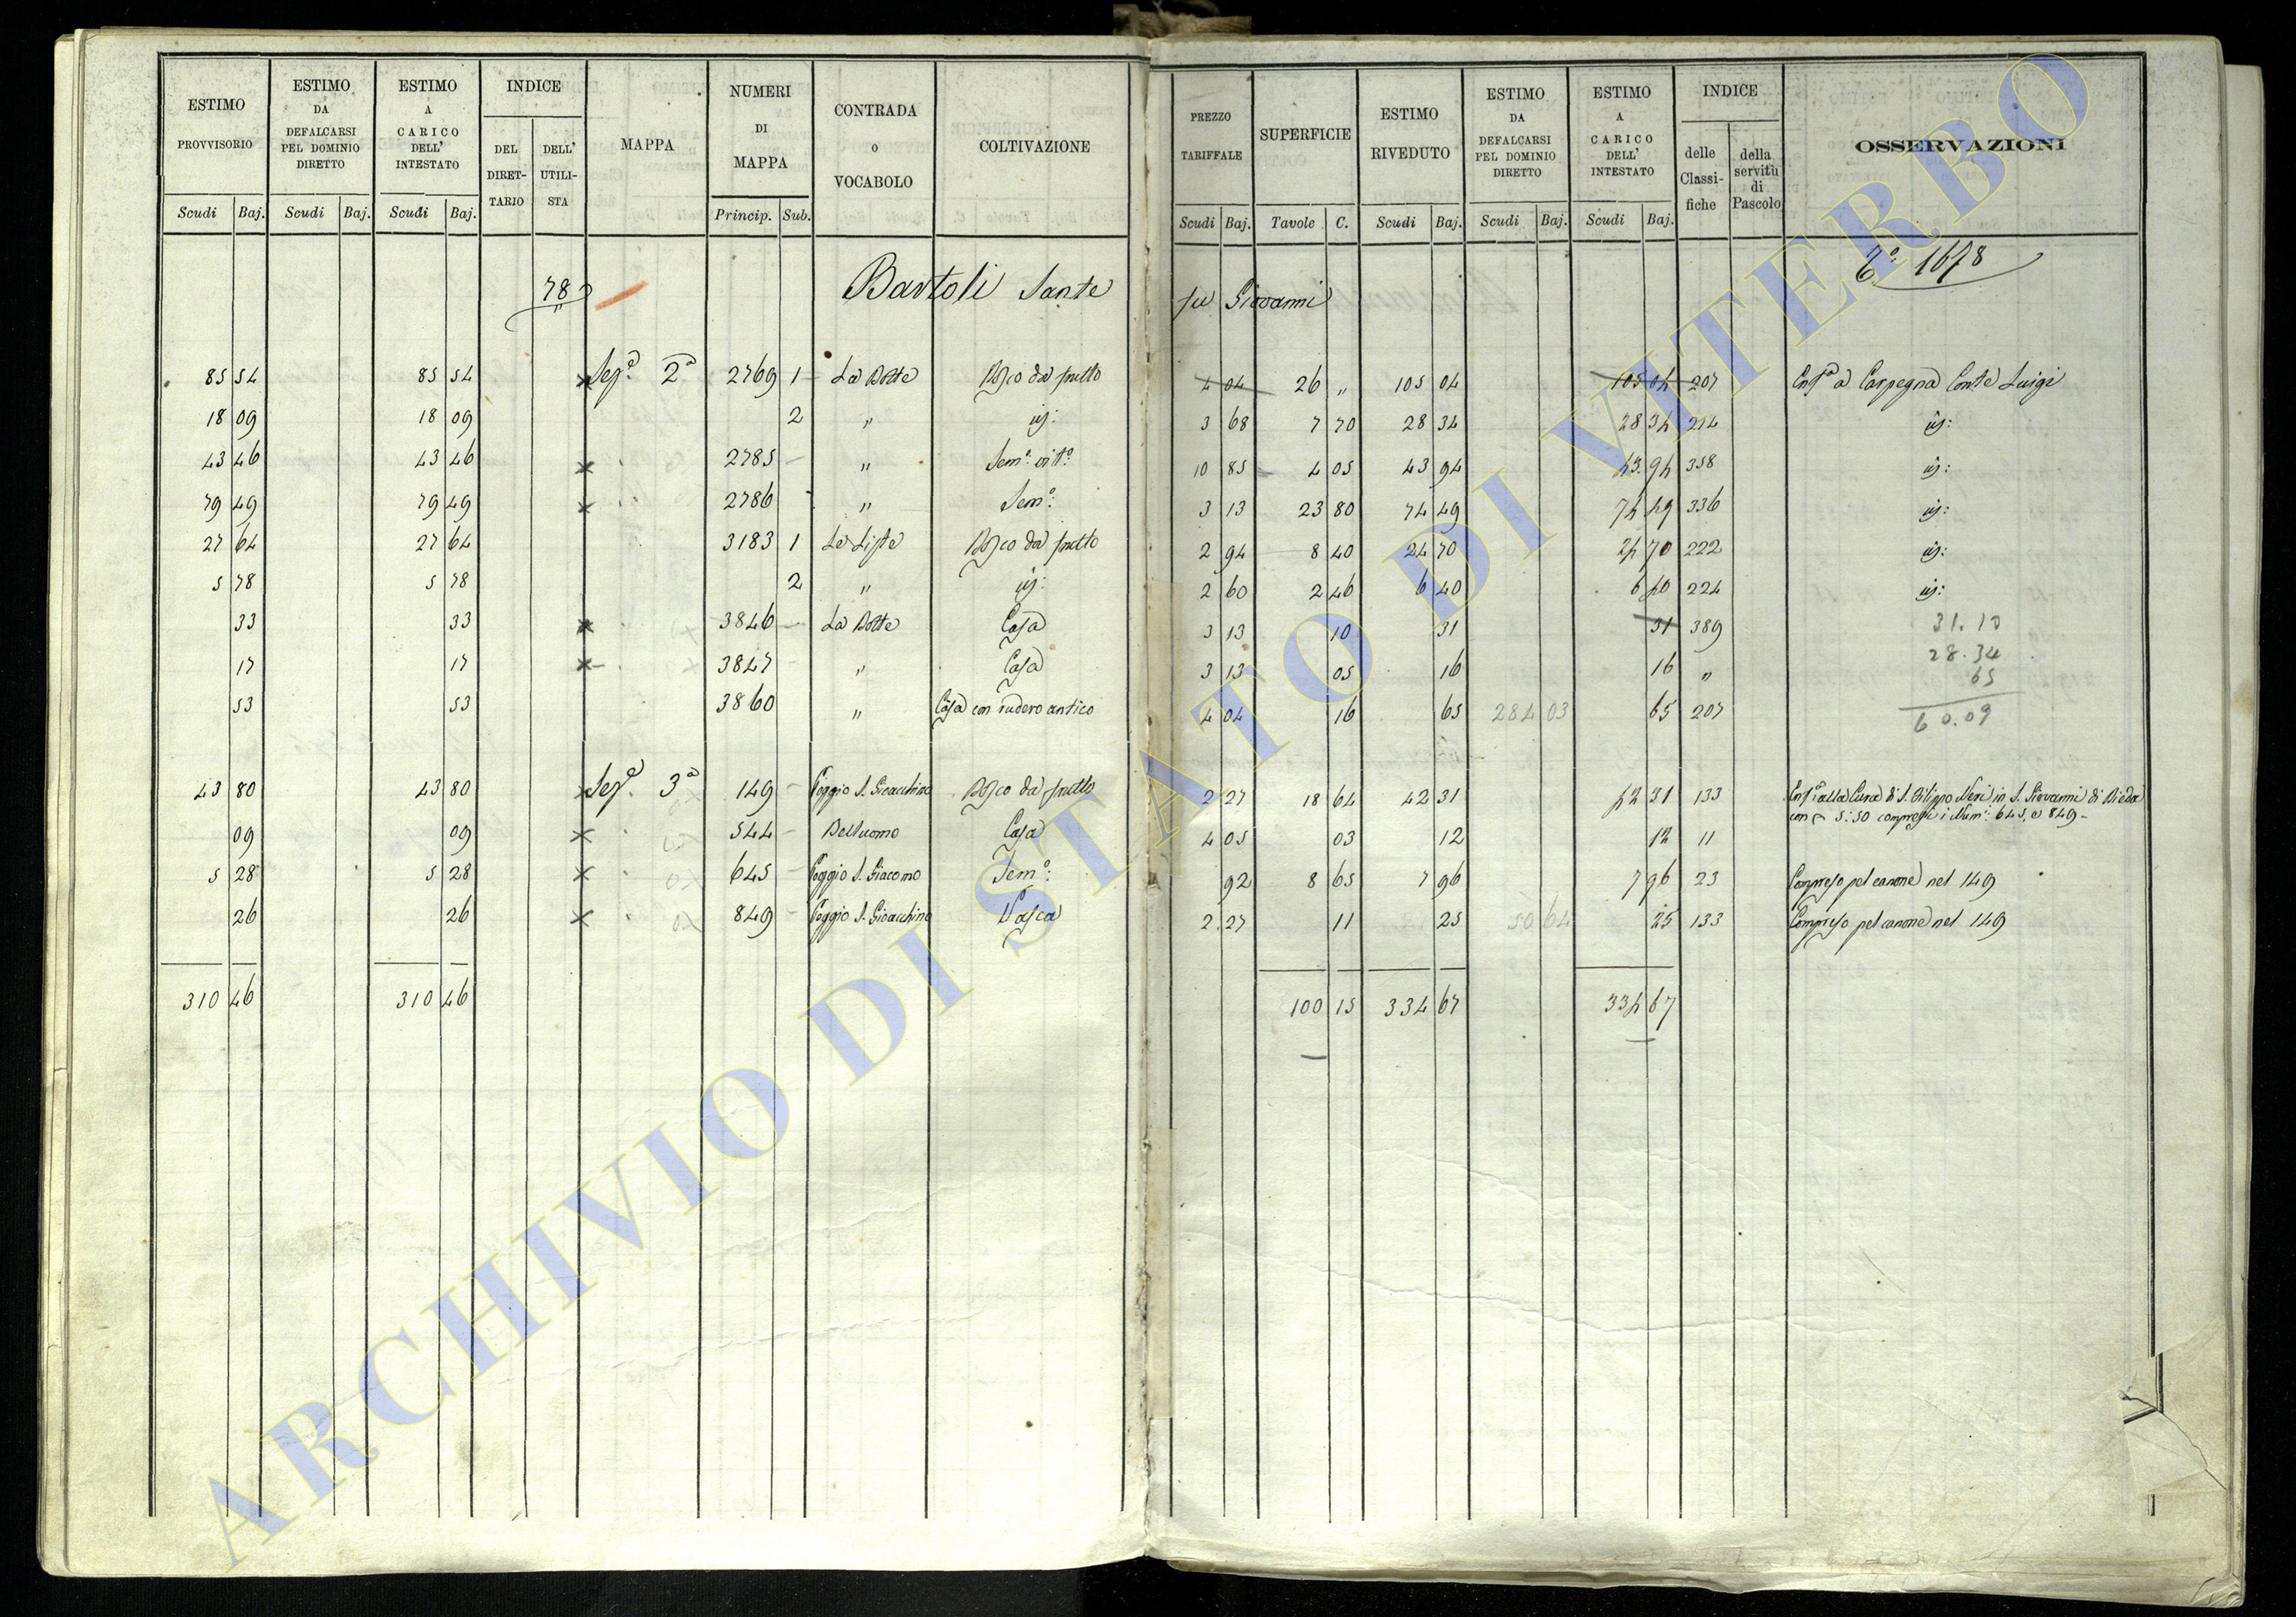 ESTIMO PROVVISORIO | ESTIMO DA DEFALCARSI PEL DOMINIO DIRETTO | ESTIMO A CARICO DELL' INTESTATO | INDICE DEL DIRETTARIO | DELL' UTILISTA | MAPPA | NUMERI DI MAPPA | CONTRADA O VOCABOLO | COLTIVAZIONE | PREZZO TARIFFALE | SUPERFICIE | ESTIMO RIVEDUTO | ESTIMO DA DEFALCARSI PEL DOMINIO DIRETTO | ESTIMO A CARICO DELL' INTESTATO | INDICE delle Classifiche | della servitù di Pascolo | OSSERVAZIONI
Scudi Baj. Scudi Baj. Scudi Baj. Princip. Sub. Scudi Baj. Tavole C. Scudi Baj. Scudi Baj. Scudi Baj.
78 Bartoli Sante fu Giovanni 1678
85 54 85 54 Sez.e 2a 2769 1 La Botte Bosco da frutto 4 04 26 " 105 04 105 04 207 Enf.a a Carpegna Conte Luigi
18 09 18 09 2 " id: 3 68 7 70 28 34 28 34 214 id:
43 46 43 46 2785 " Sem.o vit.o 10 85 4 05 43 94 43.94 358 id:
79 49 79 49 2786 " Sem.o: 3 13 23 80 74 49 74 49 336 id:
27 64 27 64 3183 1 Le Liste Bosco da frutto 2 94 8 40 24 70 24 70 222 id:
5 78 5 78 2 " id: 2 60 2 46 6 40 6 40 224 id:
33 33 3846 La Botte Casa 3 13 10 31 31 389 31.10
17 17 3847 " Casa 3 13 05 16 16 " 28.34
65
53 53 3860 " Casa con rudero antico 4 04 16 65 284 03 65 207 60.09
43 80 43 80 Sez.e 3a 149 Poggio S. Gioacchino Bosco da frutto 2 27 18 64 42 31 42 31 133 Enf.a alla Cura di S. Filippo Neri in S. Giovanni di Bieda
con 5:50 compresi i Num: 645, e 849-
09 09 544 Belluomo Casa 4 05 03 12 12 11
5 28 5 28 645 Poggio S. Giacomo Sem.o: 92 8 65 7 96 7 96 23 Compreso pel canone nel 149
26 26 849 Poggio S. Gioacchino Vasca 2 27 11 25 50 64 25 133 Compreso pel canone nel 149
310 46 310 46 100 15 334 67 334 67
ARCHIVIO DI STATO DI VITERBO